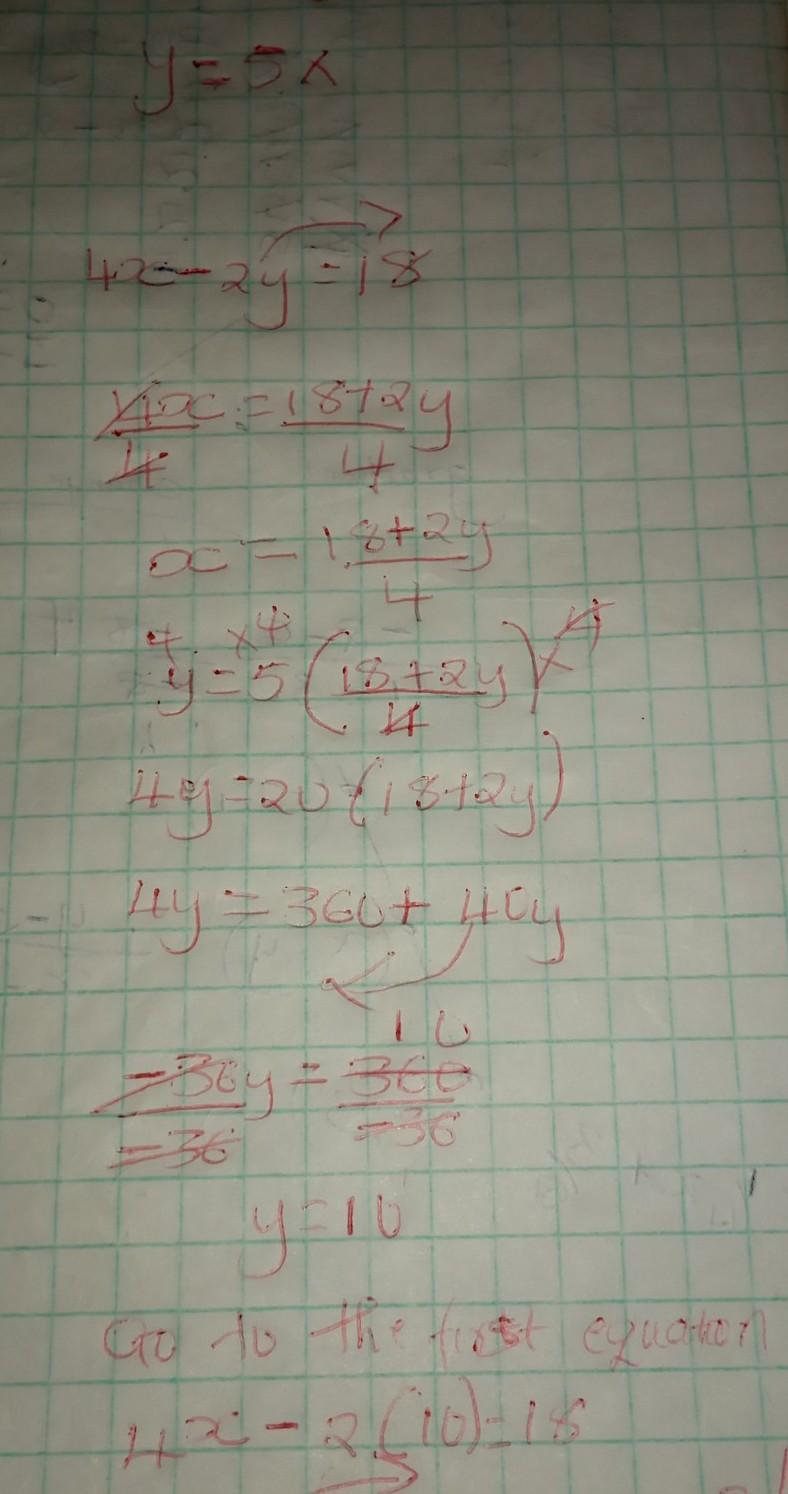 y = 5x
4x - 2y = 18
4x/4 = 18+2y/4
x = 18+2y/4
4 x4 4
y = 5 (18+2y/4) x
4y = 20 (18+2y)
4y = 360 + 40y
10
-36y/-36 = 360/-36
y = 10
Go to the first equation
4x - 2(10) = 18